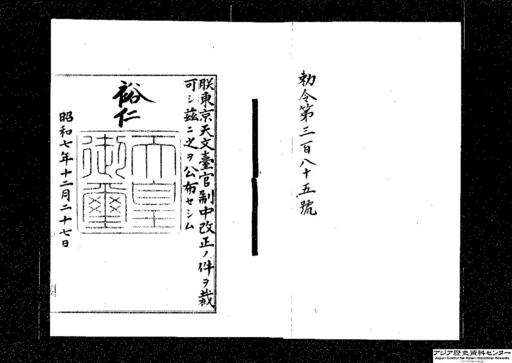 勅令第三百八十五號
朕東京天文臺官制中改正ノ件ヲ裁
可シ茲ニ之ヲ公布セシム
裕仁
天皇
御璽
昭和七年十二月二十七日
アジア歴史資料センター
Japan Center for Asian Historical Records